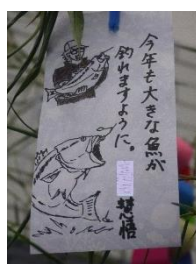 今年も大きな魚が
釣れますように。